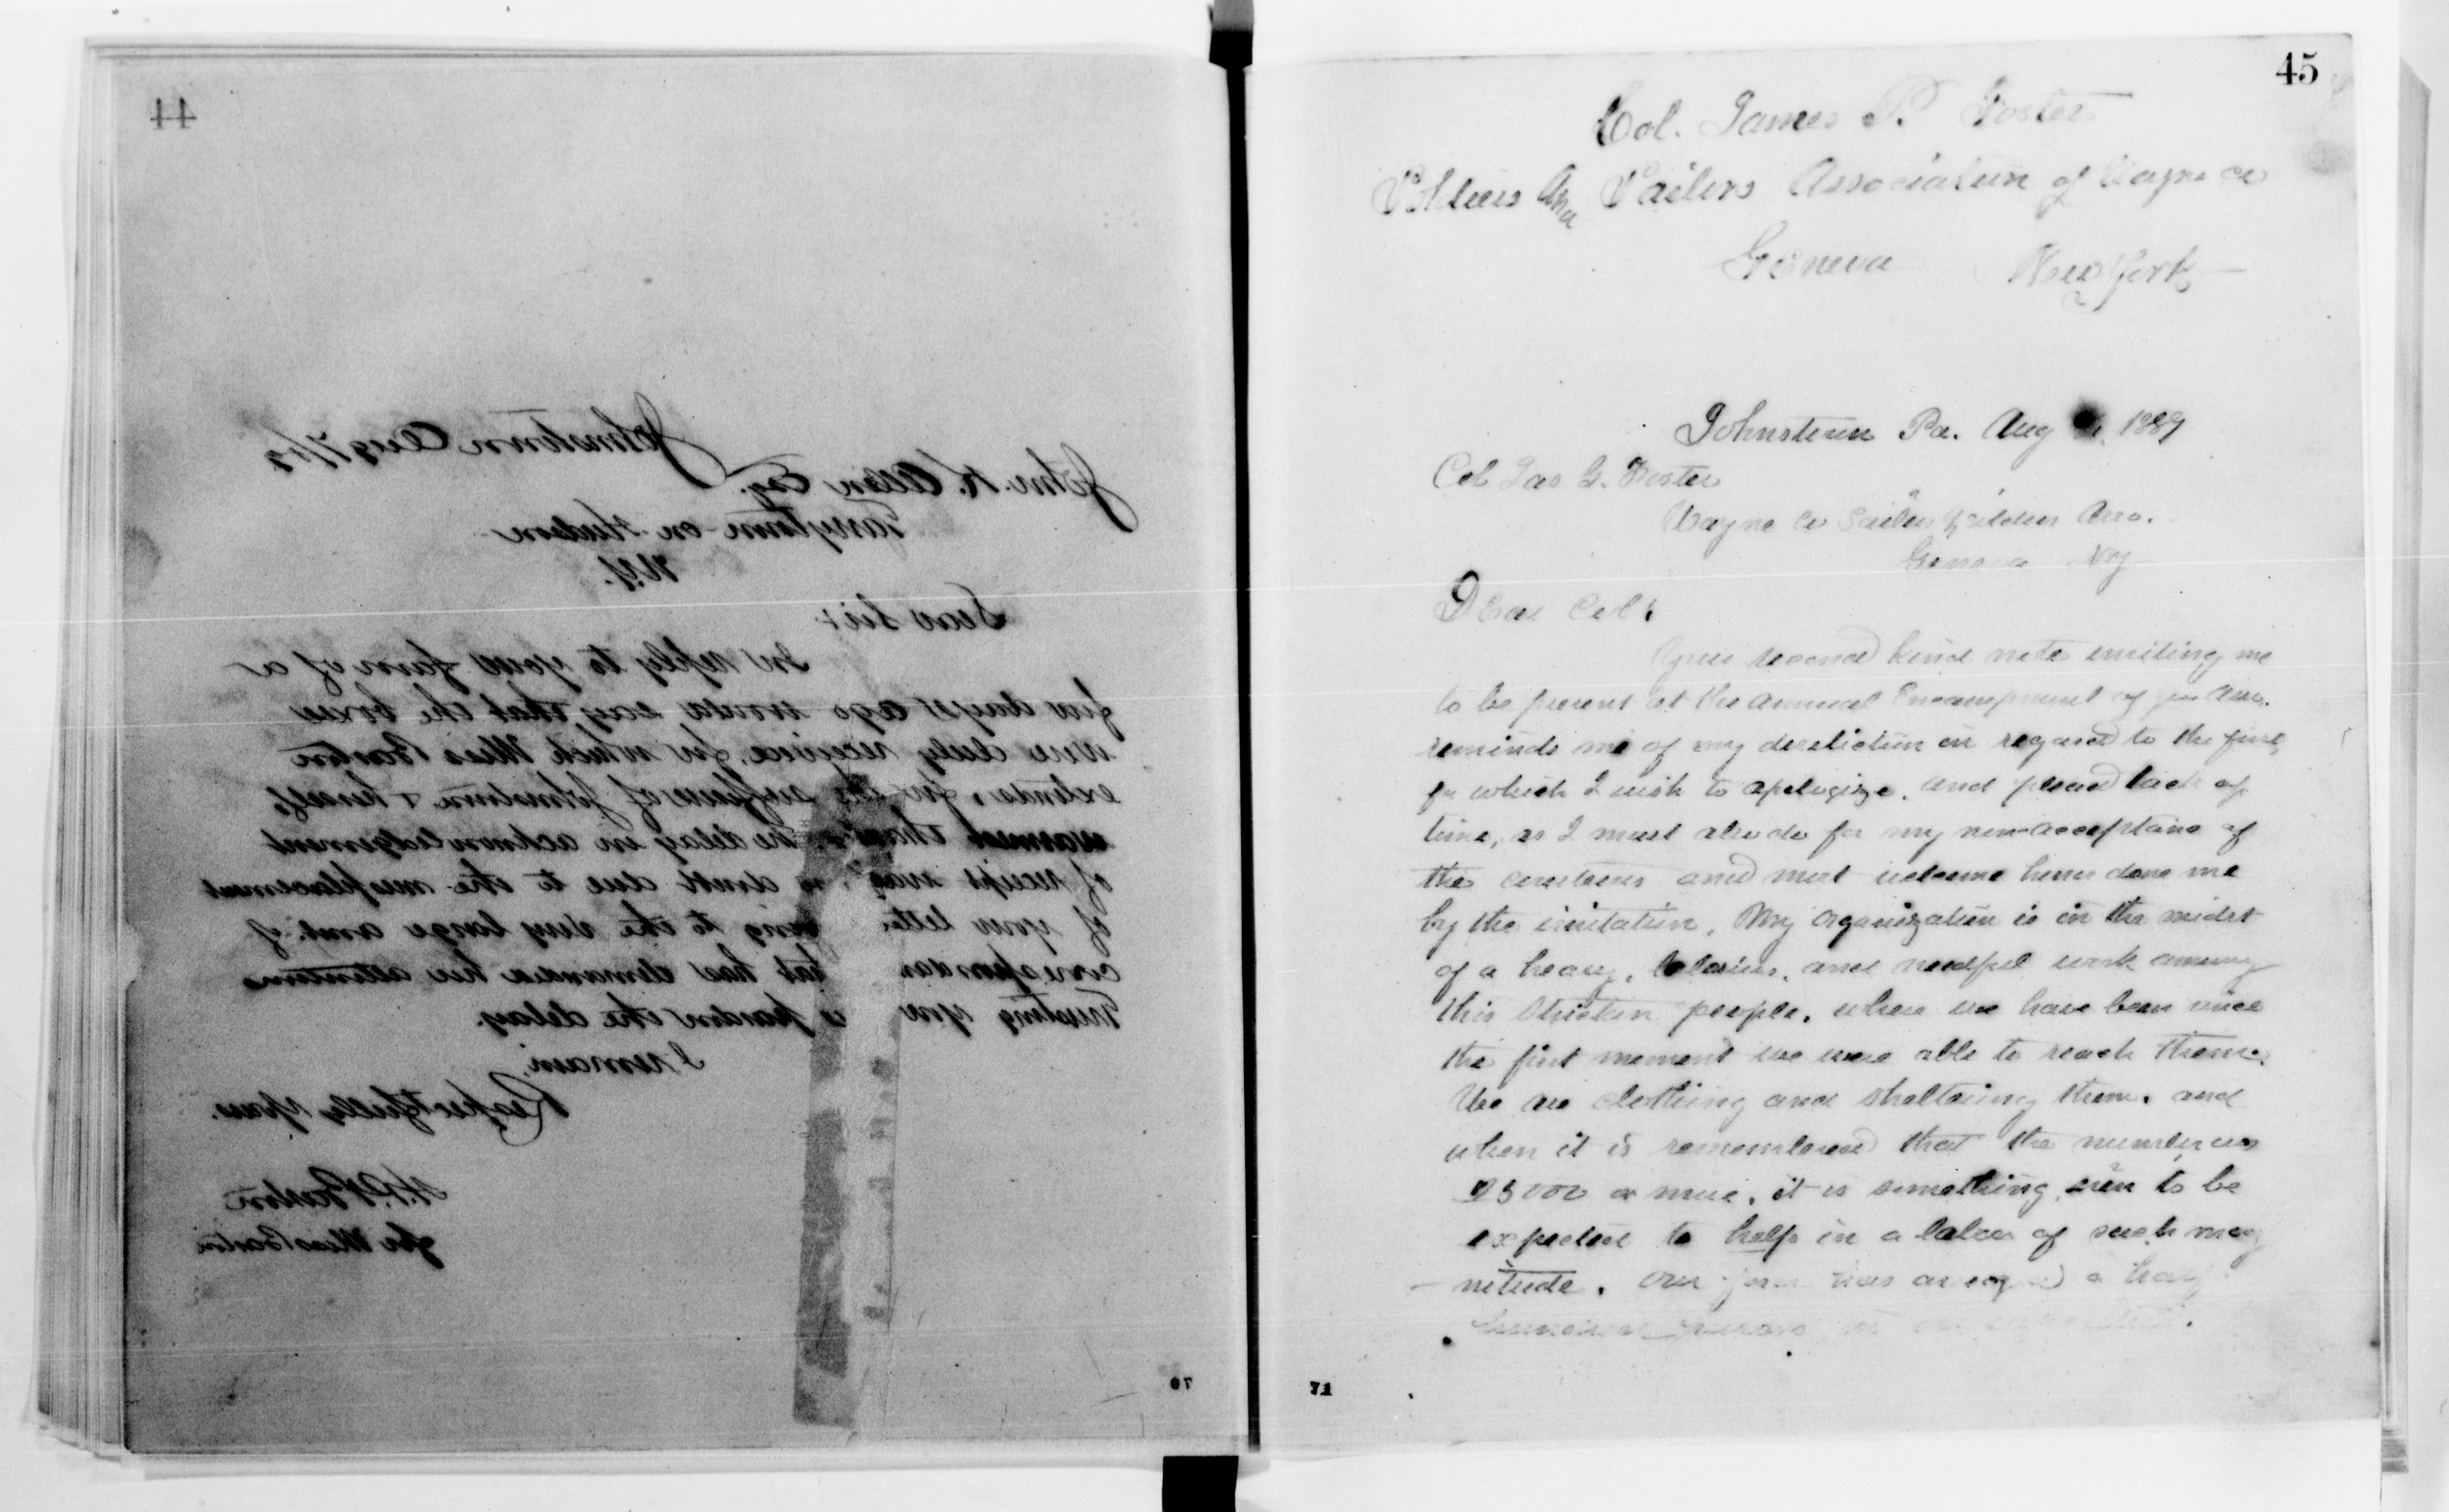 44
Johnstown Aug 7/89
John. K. Allen Esq.
Tarrytown-on-Hudson
N.Y.
Dear Sir:
In reply to your favor of a
few days ago would say, that the boxes
were duly received, for which Miss Barton
extends, for the sufferers of Johnstown & herself,
warmest thanks. The delay in acknowledgement
of receipt was no doubt due to the misplacement
of your letter owing to the very large amt. of
correspondence that has demanded her attention
Trusting you will pardon the delay.
I remain,
Respectfully Yours.
for Miss Barton
70
45
Col. James P. Foster
Soldiers and Sailors Association of Wayne Co
Geneva New York
Johnstown Pa. Aug 1889
Col Jas G. Foster
Wayne Co Sailors & Soldiers Asso.
Geneva NY
Dear Col:
Your second kind note inviting me
to be present at the annual Encampment of your Asso.
reminds me of my dereliction in regard to the first,
for which I wish to apologize, and plead lack of
time, as I must also do for my non-acceptance of
the courteous and most welcome honor done me
by the invitation. My organization is in the midst
of a heavy, laborious, and needful work among
this stricken people, where we have been since
the first moment we were able to reach them.
We are clothing and sheltering them. and
when it is remembered that the number was
25000 or more, it is something even to be
expected to help in a labor of such mag
- nitude. Our has a half
71